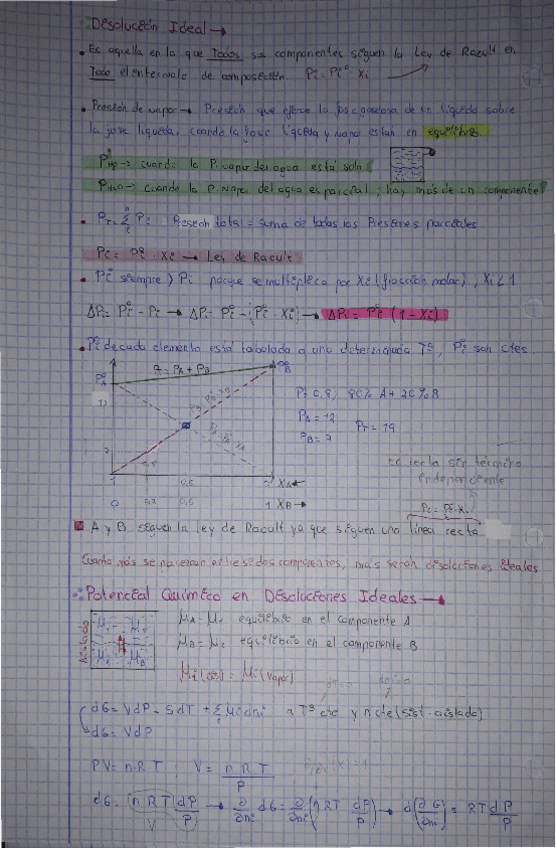 Desolución Ideal →
• Es aquella en la que Todos sus componentes siguen la Ley de Raoult en
Todo el intervalo de composición. Pi = Pi° · Xi
• Presión de vapor → Presión que ejerce la fase gaseosa de un líquido sobre
la fase líquida, cuando la fase líquida y vapor están en equilibrio
P°H2O → cuando la P. vapor del agua está sola
PH2O → cuando la P. vapor del agua es parcial, hay más de un componente
• PT = Σ Pi Presión total = suma de todas las Presiones parciales
Pi = Pi° · Xi → Ley de Raoult
• Pi° siempre > Pi porque se multiplica por Xi (fracción molar), Xi < 1
ΔPi = Pi° - Pi → ΔPi = Pi° - (Pi° · Xi) → ΔPi = Pi° (1 - Xi)
• Pi° de cada elemento está tabulada a una determinada Tª, Pi° son ctes.
P°A
PT = PA + PB
P°B
80% A + 20% B
PA = 12
PB = 7
PT = 19
es recta sin término
independiente
1
0,6
XA ←
0
0,2
0,6
1 XB →
A y B siguen la ley de Raoult ya que siguen una línea recta
Cuanto más se parezcan entre sí dos componentes, más serán disoluciones ideales
Potencial Químico en Desoluciones Ideales →
equilibrio en el componente A
equilibrio en el componente B
μi(dis) = μi(vapor)
dG = VdP - SdT + Σ μi dni a Tª cte y n cte (sist. aislado)
dG = VdP
PV = nRT ; V = nRT / P
dG = (nRT) dP/P → ∂/∂ni dG = ∂/∂ni (nRT dP/P) → d(∂G/∂ni) = RT dP/P